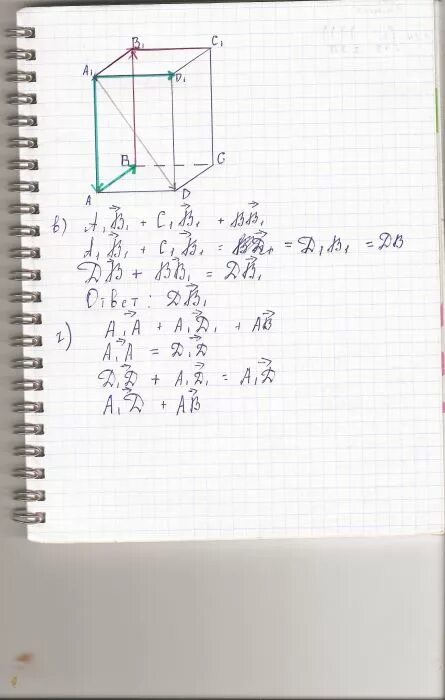 B₁ C₁
A₁ D₁
B C
A D
в) A₁B₁ + C₁B₁ + BB₁
A₁B₁ + C₁B₁ = = D₁B₁ = DB
DB + BB₁ = DB₁
Ответ: DB₁
г) A₁A + A₁D₁ + AB
A₁A = D₁D
D₁D + A₁D₁ = A₁D
A₁D + AB